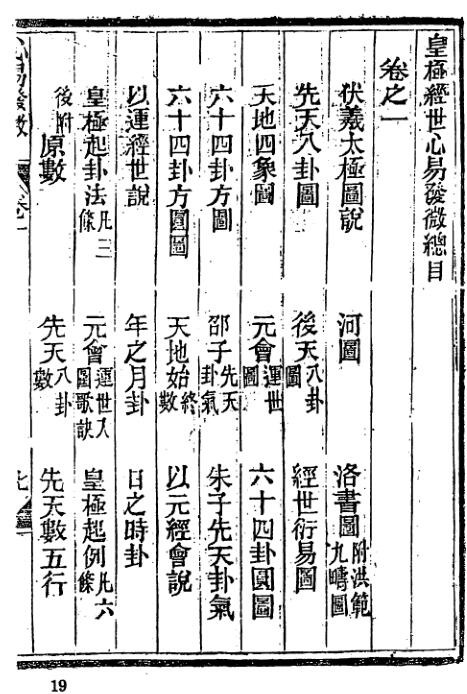 皇極經世心易發微總目
卷之一
伏羲太極圖說 河圖 洛書圖附洪範九疇圖
先天八卦圖 後天八卦圖 經世衍易圖
天地四象圖 元會運世圖 六十四卦圓圖
六十四卦方圖 邵子先天卦氣 朱子先天卦氣
六十四卦方圓圖 天地始終數 以元經會說
以運經世說 年之月卦 日之時卦
皇極起卦法凡三條 元會運世入圖歌訣 皇極起例凡六條
後附原數 先天八卦數 先天數五行
19